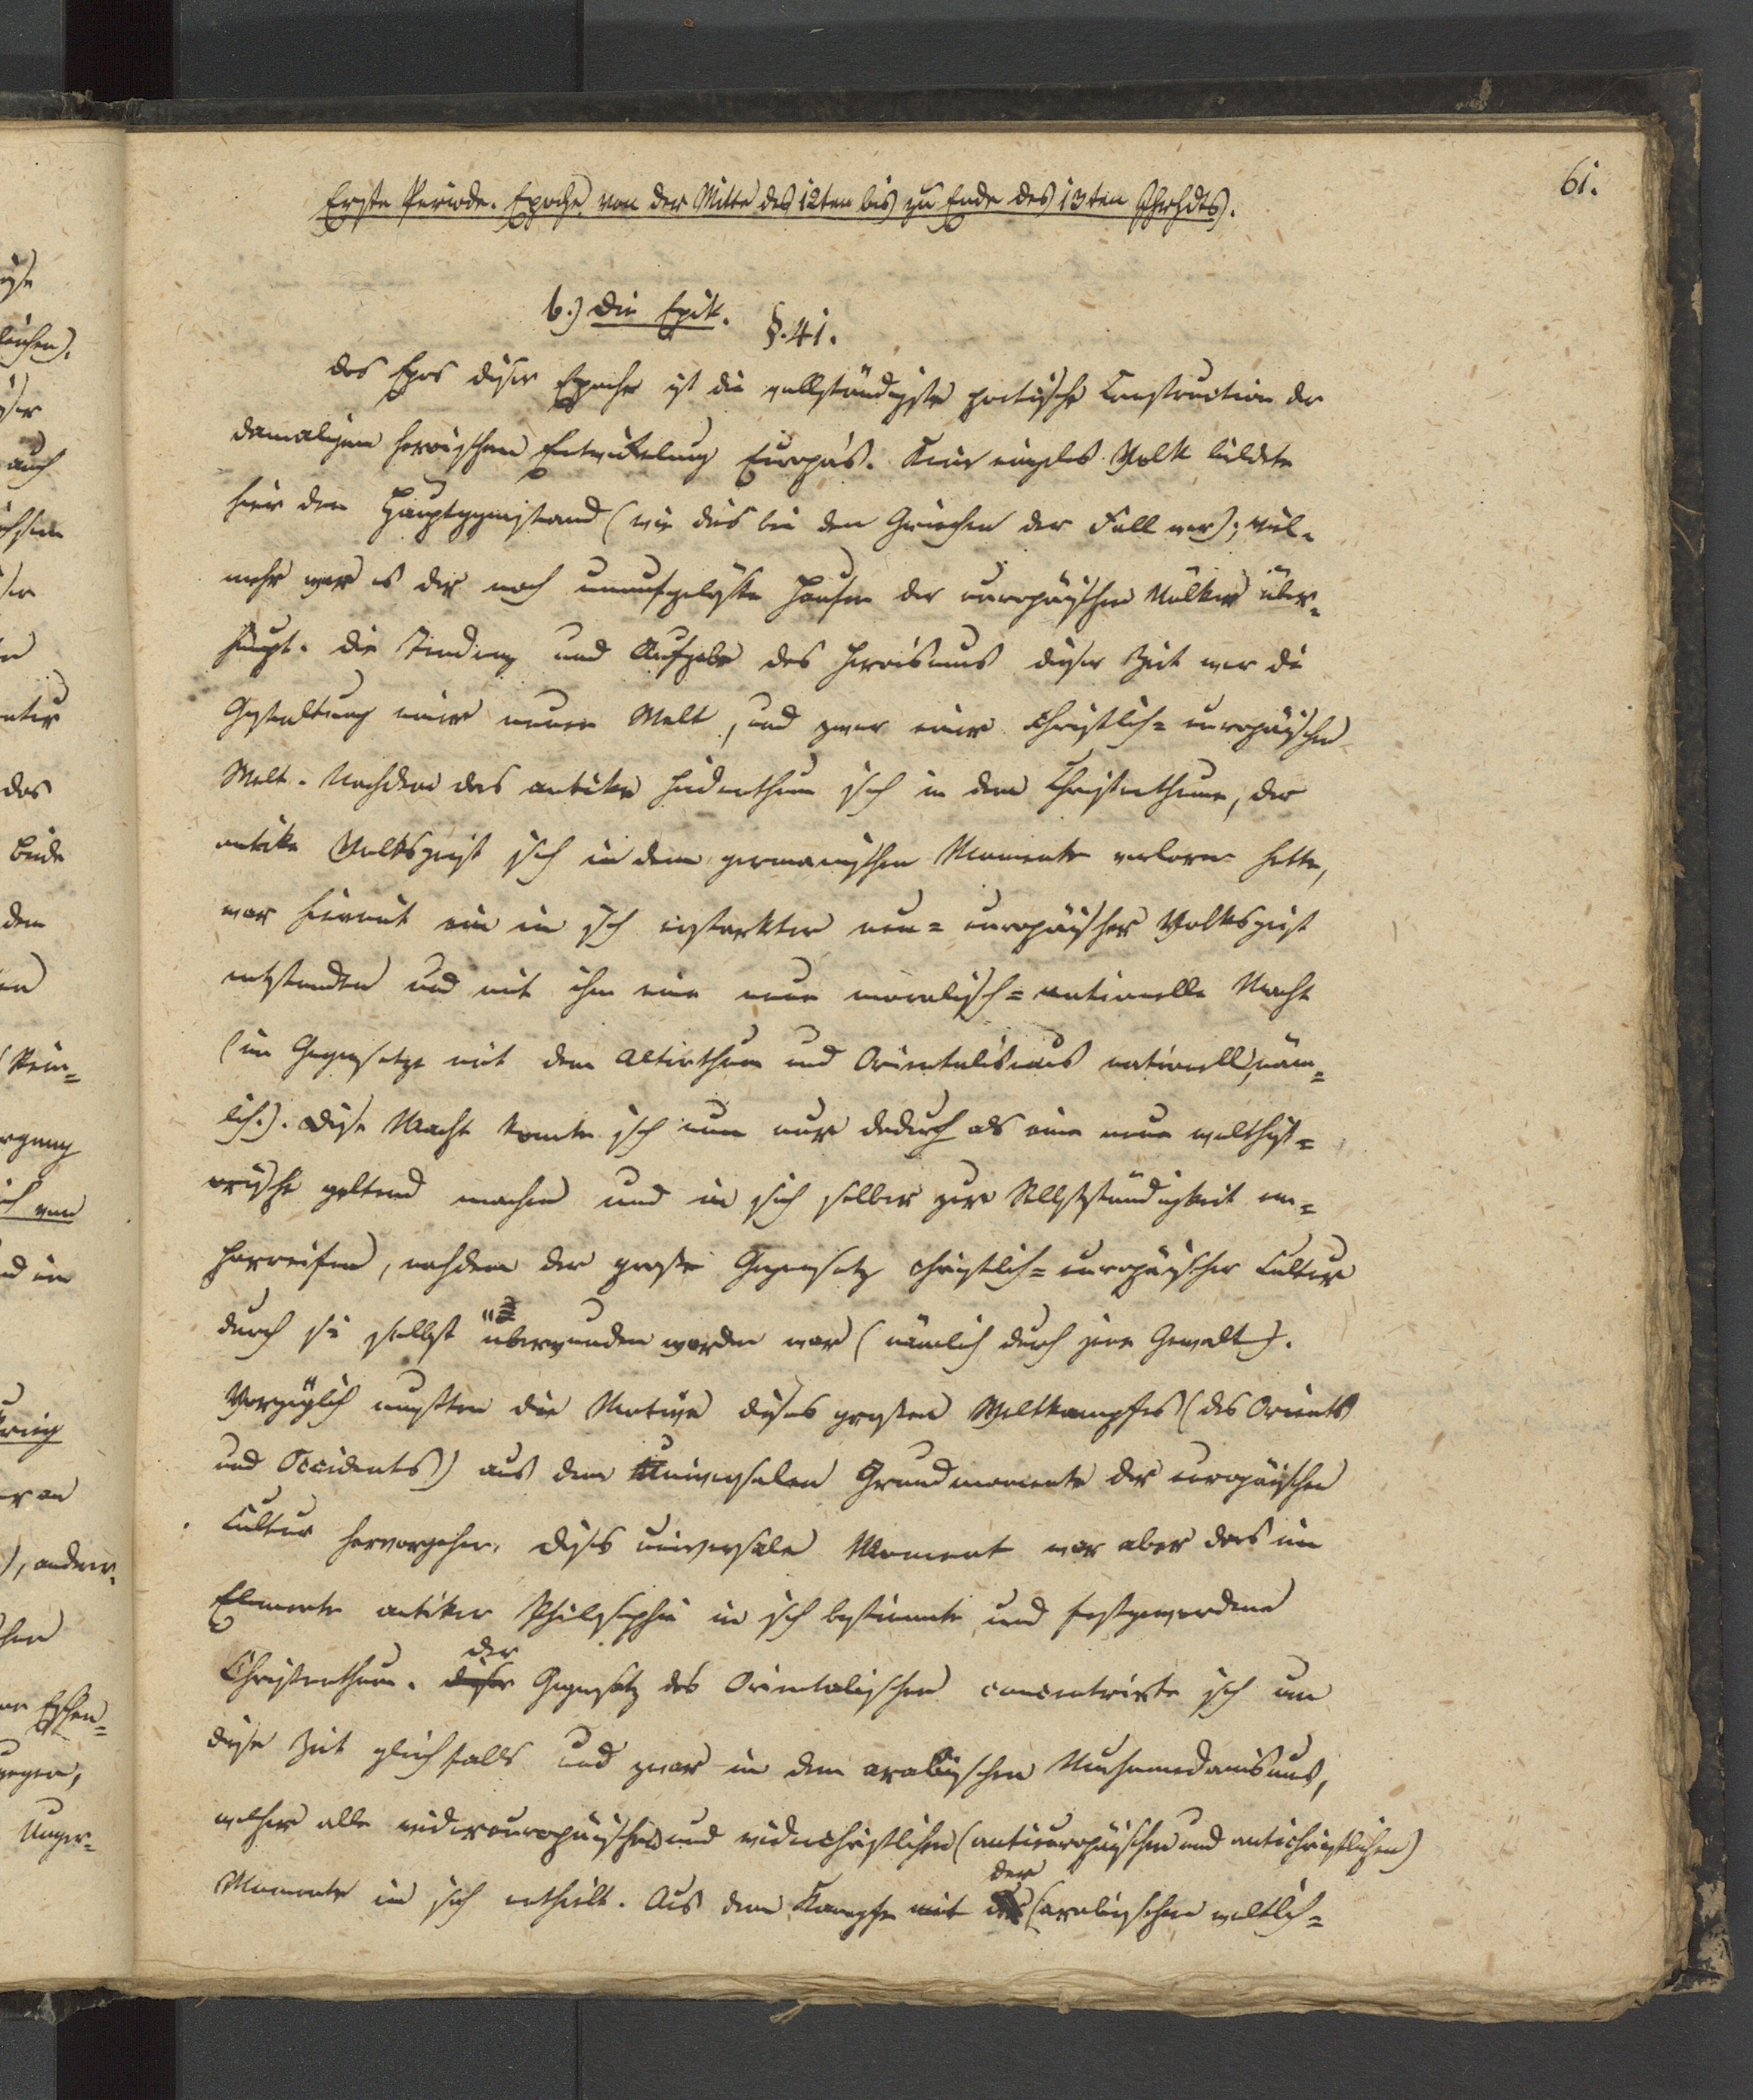 61.
Erste Periode. Epoche von der Mitte des 12ten bis zu Ende des 13ten Jhrhdts.
b.) die Epik. §. 41.
das Epos diser Epoche ist die vollständigste poetische Construction der
damaligen heroischen Entwikelung Europas. Kein einzeles Volk bildete
hier den Hauptgegenstand (wie dies bei den Griechen der Fall war); viel-
mehr war es der noch unaufgelöste Haufen der europäischen Völker über-
haupt. die Tendenz und Aufgabe des Heroismus dieser Zeit war die
Gestaltung einer neuen Welt, und zwar einer christlich-europäischen
Welt. Nachdem das antike Heidenthum sich in dem Christenthume, der
antike Volksgeist sich in dem germanischen Momente verloren hatte,
war hiermit ein in sich erstarkter neu-europäischer Volksgeist
entstanden und mit ihm eine neue moralisch-nationelle Macht
(im Gegensatze mit dem Alterthum und Orientalismus nationell, näm-
lich.). Diese Macht konte sich nun nur dadurch als eine neue welthist-
orische geltend machen und in sich selber zur Selbstständigkeit em-
porreifen, nachdem der große Gegensatz christlich-europäischer Cultur
durch sie selbst überwunden worden war (nämlich durch jene Gewalt).
Vorzüglich mußten die Motive dieses großen Weltkampfes (des Orients
und Occidents) aus dem Universalen Grundmomente der europäischen
Cultur hervorgehen, dieses universale Moment war aber das im
Elemente antiker Philosophie in sich bestimmte und festgewordene
Christenthum. dieser der Gegensatz des Orientalischen concentrirte sich um
diese Zeit gleichfalls und zwar in dem arabischen Muhamedanismus,
welcher alle widereuropäischen und widerchristlichen (antieuropäischen und antichristlichen)
Momente in sich enthielt. Aus dem Kampfe mit der (arabischen weltlich-
auch
das
beide
dem